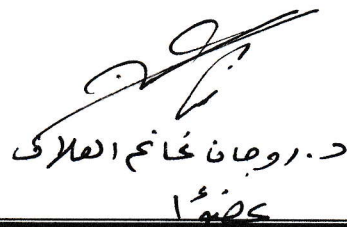 د. روجان غانم العلاف
عضوًا